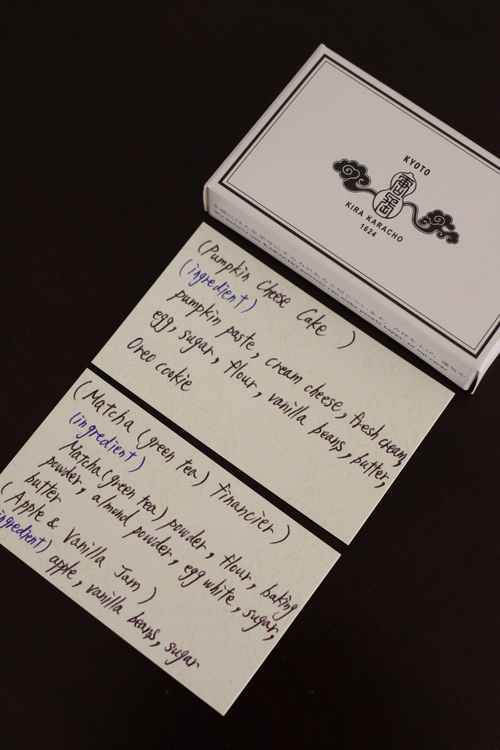 KYOTO
KIRA KARACHO
1624
(Pumpkin Cheese Cake )
(ingredient)
pumpkin paste, cream cheese, fresh cream,
egg, sugar, flour, vanilla beans, butter,
Oreo cookie
(Matcha (green tea) financier )
(ingredient)
Matcha (green tea) powder, flour, baking
powder, almond powder, egg white, sugar,
butter
(Apple & Vanilla Jam )
ingredient)
apple, vanilla beans, sugar